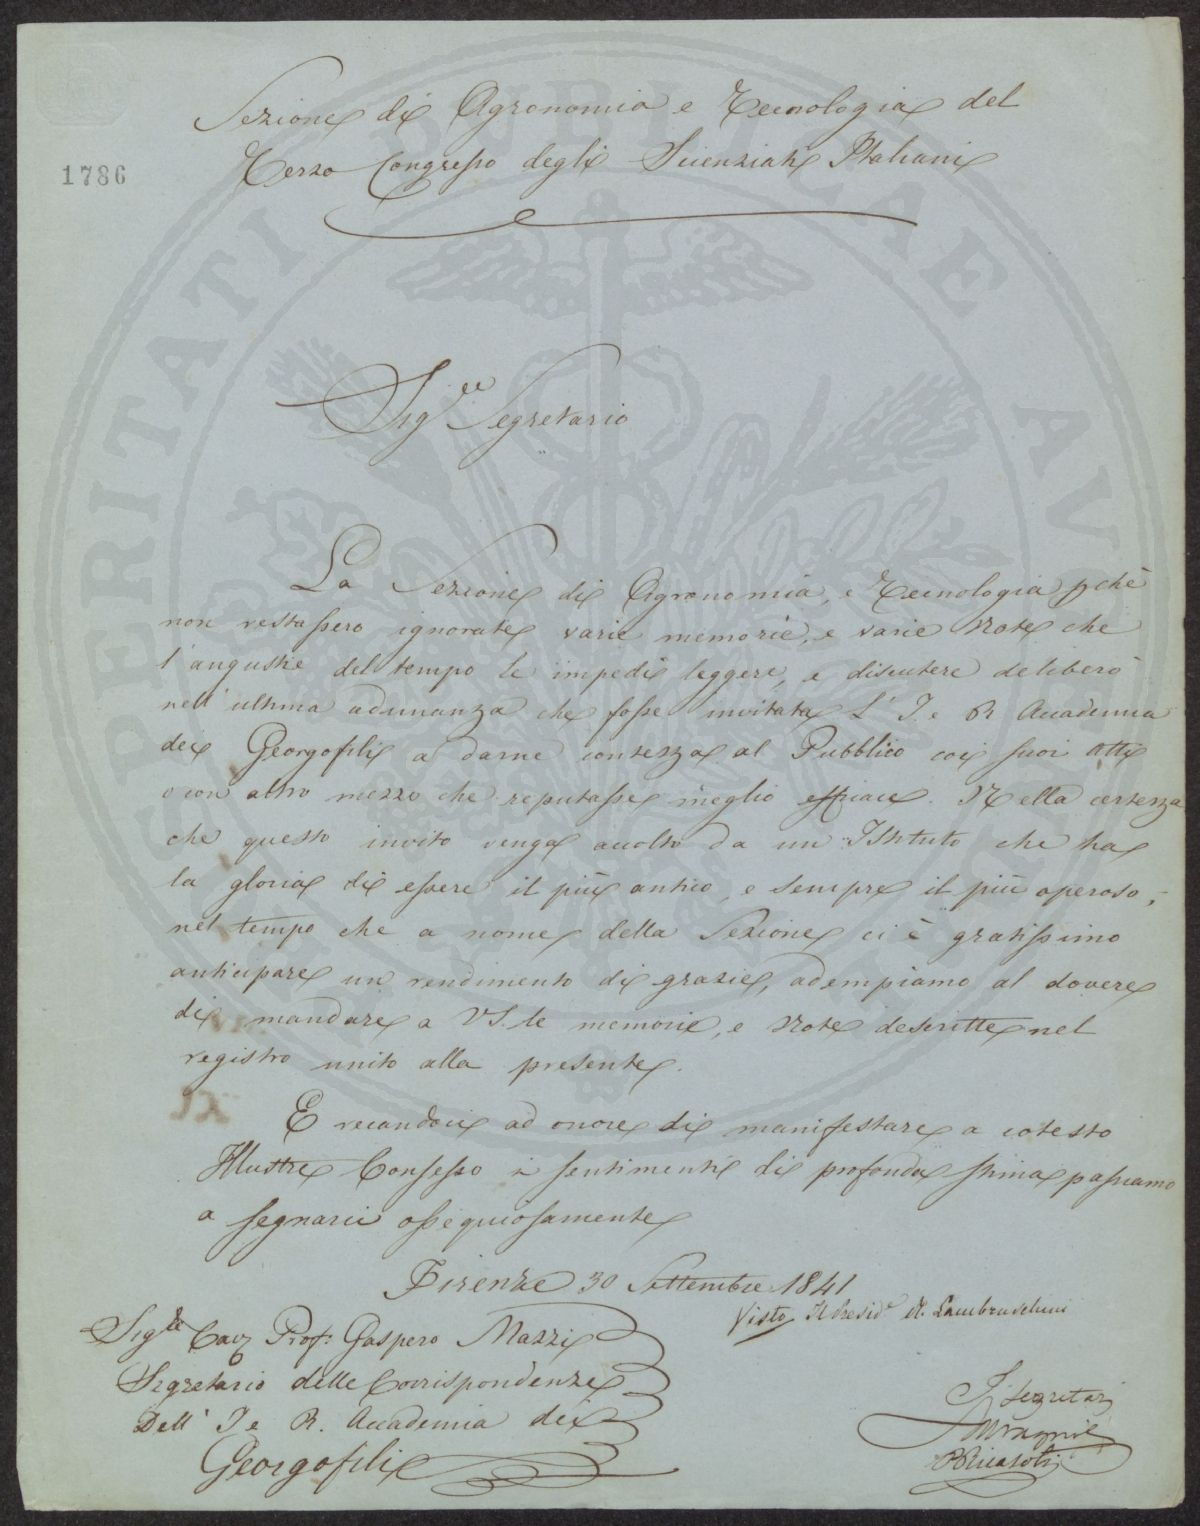 Sezione di Agronomia e Tecnologia del
Terzo Congresso degli Scienziati Italiani
1786
Sig.re Segretario
La Sezione di Agronomia, e Tecnologia pchè
non restassero ignorate varie memorie, e varie Note che
l'angustie del tempo le impedì leggere, e discutere deliberò
nell'ultima adunanza che fosse invitata L'I. e R. Accademia
dei Georgofili a darne contezza al Pubblico coi suoi Atti
o con altro mezzo che reputasse meglio efficace. Nella certezza
che questo invito venga accolto da un Istituto che ha
la gloria di essere il più antico, e sempre il più operoso,
nel tempo che a nome della Sezione ci è gratissimo
anticipare un rendimento di grazie, adempiamo al dovere
di mandare a VS. le memorie, e Note descritte nel
registro unito alla presente.
E recandoci ad onore di manifestare a cotesto
Illustre Consesso i sentimenti di profonda stima passiamo
a segnarci ossequiosamente
Firenze 30 Settembre 1841
Visto Il Presid.e R. Lambruschini
Sig.re Cav. Prof. Gaspero Mazzi
Segretario delle Corrispondenze
Dell'I. e R. Accademia dei
Georgofili
I Segretarj
B Ricasoli
PROSPERITATI PUBLICAE AUGENDAE